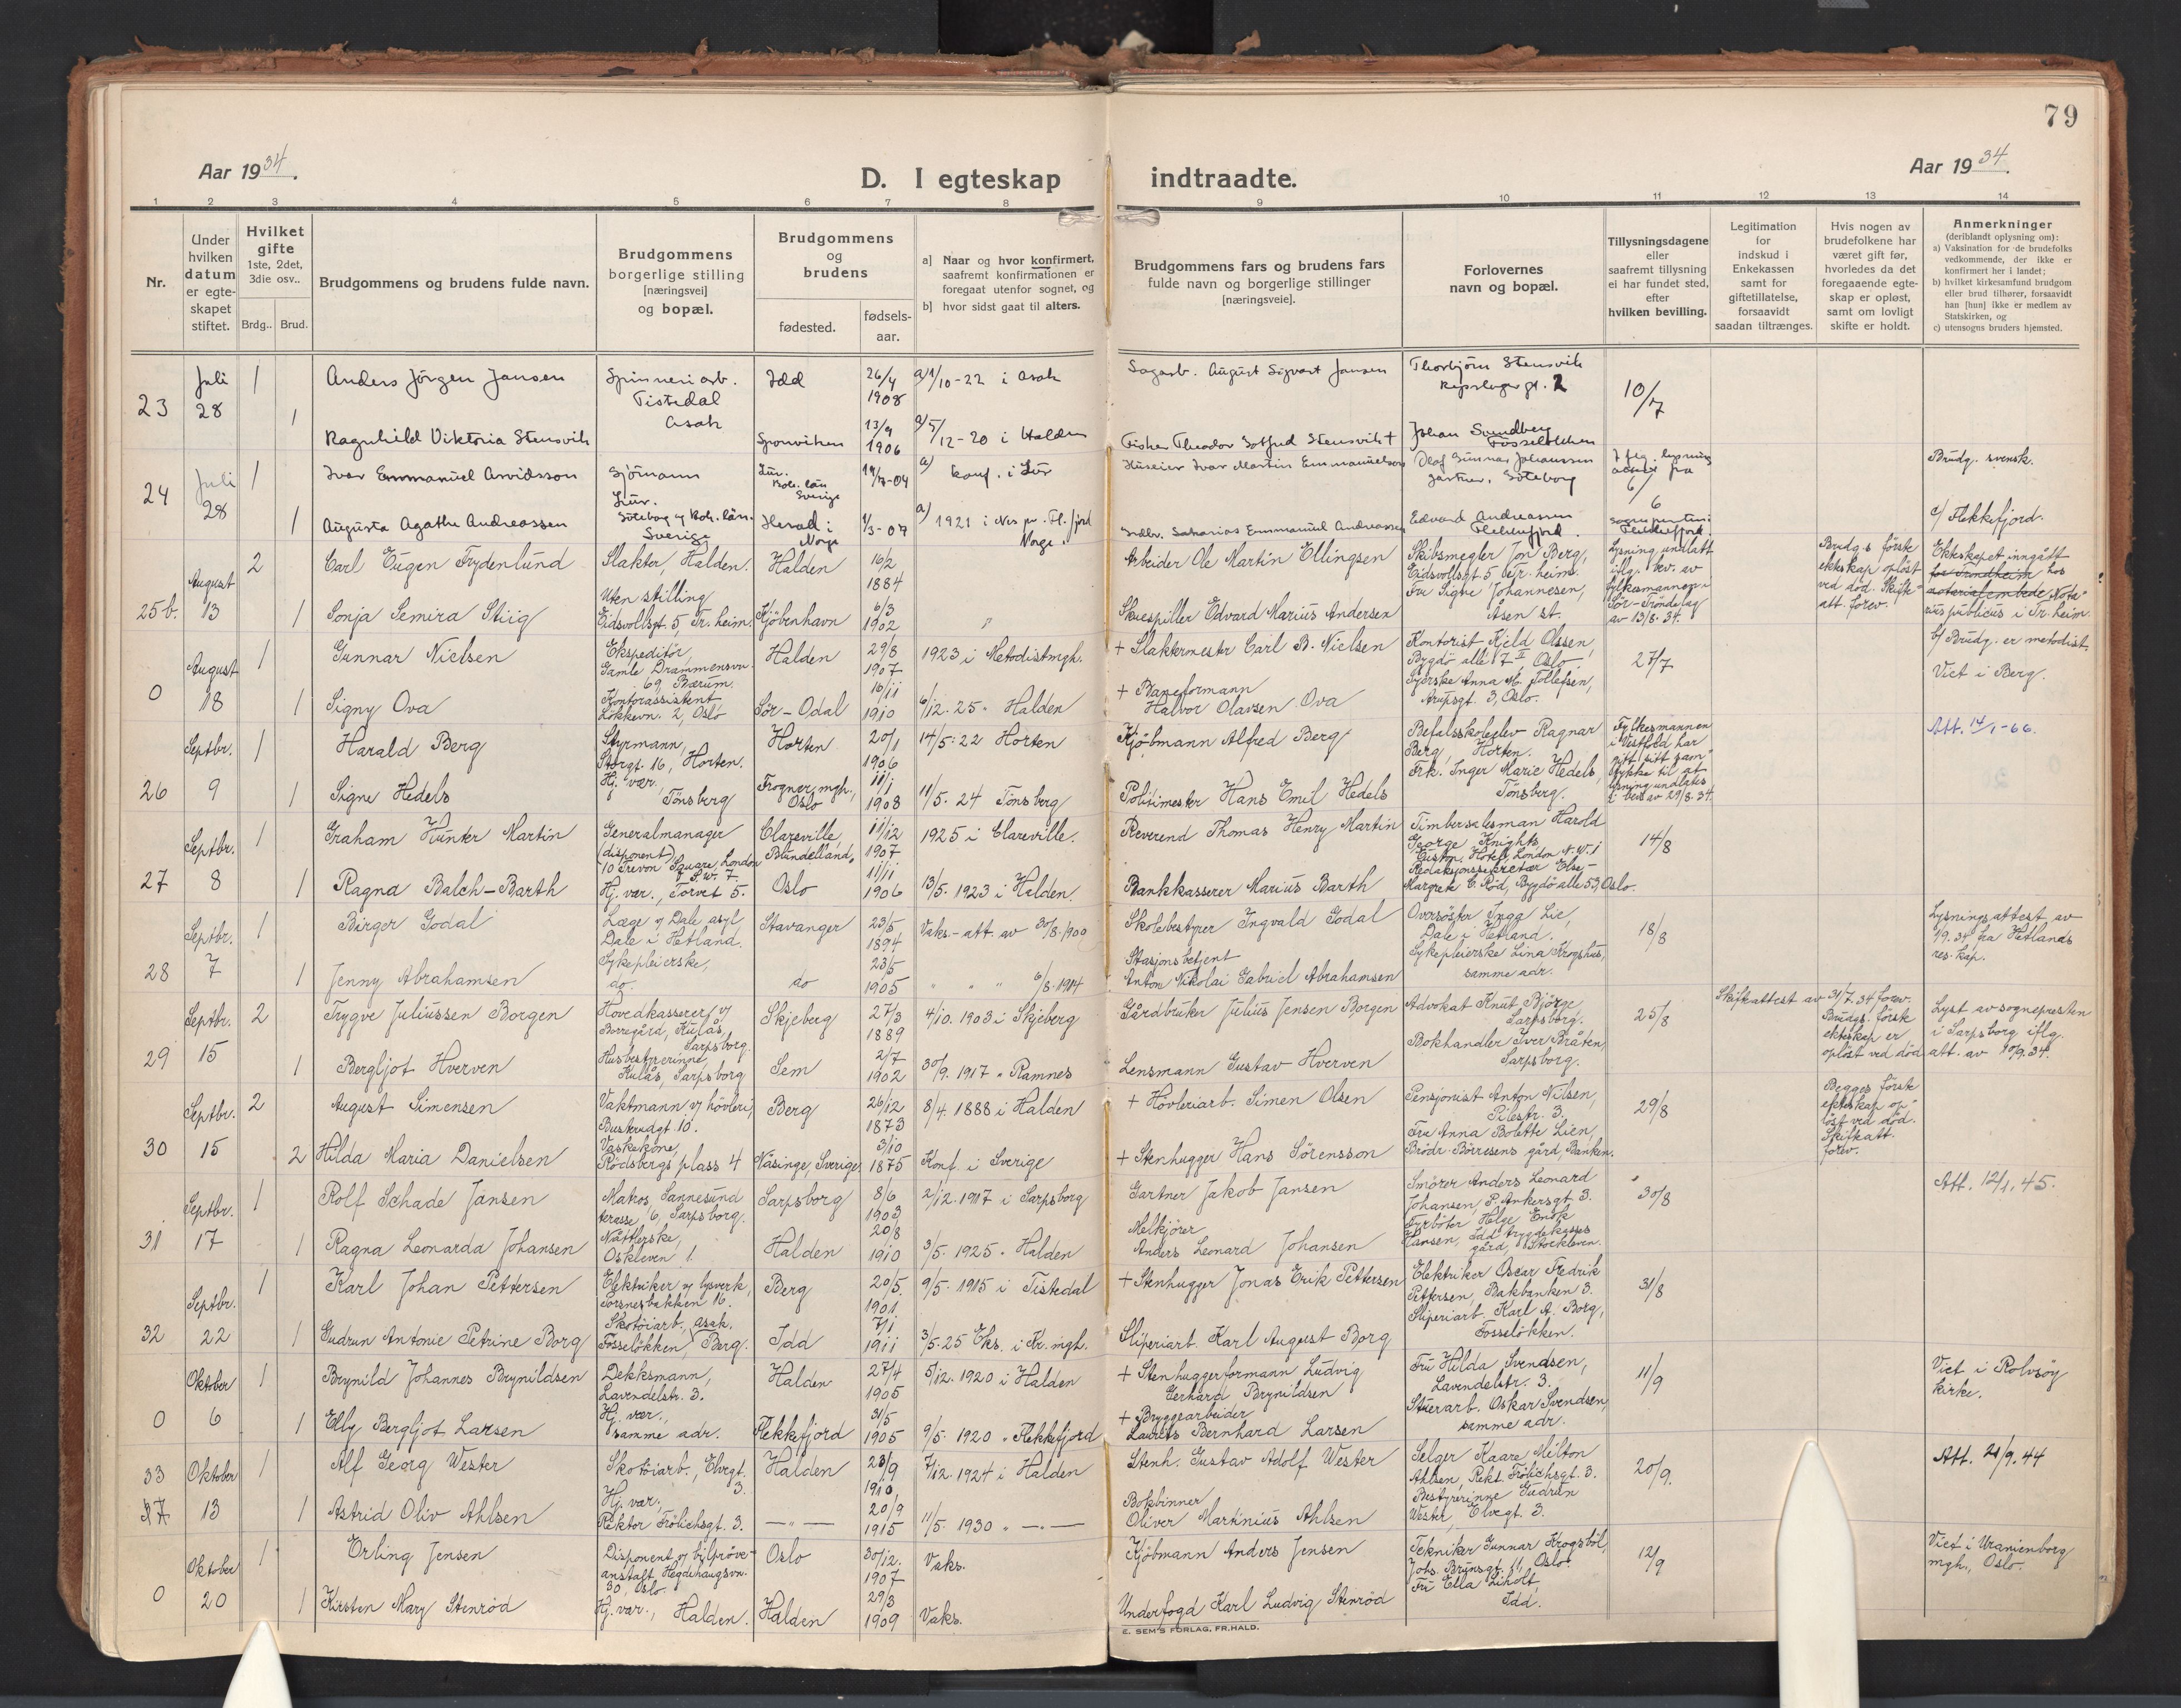 79
Aar 1934.
D. I egteskap indtraadte.
Aar 1934.
1 2 3 4 5 6 7 8 9 10 11 12 13 14
Nr.
Under hvilken datum er egte-skapet stiftet.
Hvilket gifte 1ste, 2det, 3die osv..
Brdg.. Brud.
Brudgommens og brudens fulde navn.
Brudgommens borgerlige stilling [næringsvei] og bopæl.
Brudgommens og brudens
fødested.
fødsels-aar.
a] Naar og hvor konfirmert, saafremt konfirmationen er foregaat utenfor sognet, og
b] hvor sidst gaat til alters.
Brudgommens fars og brudens fars fulde navn og borgerlige stillinger [næringsveie].
Forlovernes navn og bopæl.
Tillysningsdagene eller saafremt tillysning ei har fundet sted, efter hvilken bevilling.
Legitimation for indskud i Enkekassen samt for giftetillatelse, forsaavidt saadan tiltrænges.
Hvis nogen av brudefolkene har været gift før, hvorledes da det foregaaende egte-skap er opløst, samt om lovligt skifte er holdt.
Anmerkninger (deriblandt oplysning om):
a) Vaksination for de brudefolks vedkommende, der ikke er konfirmert her i landet;
b) hvilket kirkesamfund brudgom eller brud tilhører, forsaavidt han [hun] ikke er medlem av Statskirken, og
c) utensogns bruders hjemsted.
23 Juli 28 1 Anders Jörgen Jansen Spinneriarb. Tistedal Asak Idd 26/4 1908 a) 1/10-22 i Asak Sagarb. August Sigvart Jansen Thorbjörn Stensvik Repslagergt. 2 10/7
1 Ragnhild Viktoria Stensvik Sponviken 13/9 1906 a) 5/12-20 i Halden Fisker Theodor Gotfred Stensvik + Johan Svendberg Fosseløkken
24 Juli 28 1 Ivar Emmanuel Arvidsson Sjömann Lur. Göteborg og Boh. län. Sverige Lur. Boh. län Sverige 19/7-04 a) konf. i Lur Huseier Ivar Martin Emmanuelson Olof Gunnar Johansson gartner, Göteborg I flg. lysning attest fra 6/6 Brudg. svensk.
1 Augusta Agathe Andreassen Herad i Norge 1/3-07 a) 1921 i Nes pr. Fl.fjord Norge. Sakarias Emmanuel Andreassen Edvard Andreassen Flekkefjord. sognepresten i Flekkefjord c/ Flekkefjord.
25b. August 13 2 Carl Eugen Frydenlund Slakter, Halden. Halden 16/2 1884 Arbeider Ole Martin Ellingsen Skibsmegler Jon Berg, Eidsvollsgt. 5 Tr. heim. Lysning undlatt iflg. bev. av fylkesmannen i Sör-Tröndelag av 13/8. 34. Brudg.s förste ekteskap oplöst ved död. Skifte att. forev. Ekteskapet inngått for Trondheim hos notarialembede Notarius publicus i Tr. heim.
1 Sonja Semira Stiig Uten stilling Eidsvollsgt. 5, Tr. heim. Kjöbenhavn 6/3 1902 " Skuespiller Edvard Marius Andersen Fru Signe Johannesen, Åsen st.
0 August 18 1 Gunnar Nielsen Ekspeditör, Gamle Drammensvn. 69, Bærum. Halden 29/8 1907 1923 i Metodistmgh. + Slaktermester Carl B. Nielsen Kontorist Kjeld Olssen, Bygdö alle 7 II Oslo. 27/7 b/ Brudg. er metodist. Viet i Berg.
1 Signy Ova Kontorassistent Lökkevn. 2, Oslo Sör-Odal 16/11 1910 6/12. 25 " Halden + Baneformann Halvor Olavsen Ova Syerske Anna M. Tollefsen, Arupsgt. 3, Oslo.
26 Septbr. 9 1 Harald Berg Styrmann, Storgt. 16, Horten. Horten 20/1 1906 14/5. 22 Horten Kjöbmann Alfred Berg Befalsskoleelev Ragnar Berg, Horten. Fylkesmannen i Vestfold har gitt sitt samtykke til at lysning undlates i bev. av 29/8. 34. Att. 14/1-66.
1 Signe Hedels Hj. vær. Tönsberg Frogner mgh., Oslo 11/1 1908 11/5. 24 Tönsberg Politimester Hans Emil Hedels Frk. Inger Marie Hedels Tönsberg.
27 Septbr. 8 1 Graham Hunter Martin Generalmanager (disponent) 10 Trevor Square, London S.W. 7. Clareville 11/12 1907 1925 i Clareville. Reverend Thomas Henry Martin Timbersalesman Harold George Knights, Euston Hotel, London N.W.1 14/8
1 Ragna Balch-Barth Hj. vær., Torvet 5. Oslo 11/11 1906 13/5. 1923 i Halden. Bankkasserer Marius Barth Redaksjonssekretær Else-Margrete C. Röd, Bygdö alle 53, Oslo.
28 Septbr. 7 1 Birger Godal Læge v/ Dale asyl Dale i Hetland. Stavanger 23/5 1894 Vaks.-att. av 30/8.1900 Skolebestyrer Ingvald Godal Oversöster Inga Lie, Dale i Hetland. 18/8 Lysningsattest av 1/9. 34 fra Hetlands res. kap.
1 Jenny Abrahamsen Sykepleierske, do. do 23/5 1905 " " " 6/8. 1914 Stasjonsbetjent Anton Nikolai Gabriel Abrahamsen Sykepleierske Lina Krogshus, samme adr.
29 Septbr. 15 2 Trygve Juliussen Borgen Hovedkasserer v/ Borregård, Kulås, Sarpsborg. Skjeberg 27/3 1889 4/10. 1903 i Skjeberg Gårdbruker Julius Jensen Borgen Advokat Knut Bjørge Sarpsborg. 25/8 Skifteattest av 31/7. 34 forev. Brudg.s förste ekteskap er oplöst ved död Lyst av sognepresten i Sarpsborg iflg. att. av 10/9. 34.
1 Bergljot Hverven Husbestyrerinne, Kulås, Sarpsborg Sem 2/7 1902 30/9. 1917 " Ramnes Lensmann Gustav Hverven Bokhandler Iver Bråten, Sarpsborg.
30 Septbr. 15 2 August Simensen Vaktmann v/ hövleri, Busterudgt. 10. Berg 26/12 1873 8/4. 1888 i Halden + Hövleriarb. Simen Olsen Pensjonist Anton Nilsen, Pilestr. 3. 29/8 Begges förste ekteskap oplöst ved död. Skifteatt. forev.
2 Hilda Maria Danielsen Vaskekone, Rödsbergs plass 4 Näsinge, Sverige 3/10 1875 Konf. i Sverige + Stenhugger Hans Sörensson Fru Anna Bolette Lien, Brödr. Börresens gård, Banken.
31 Septbr. 17 1 Rolf Schade Jansen Makos, Sannesund terasse 6, Sarpsborg. Sarpsborg 8/6 1903 2/12. 1917 i Sarpsborg Gartner Jakob Jansen Smörer Anders Leonard Johansen, P. Ankersgt. 3. 30/8 Att. 12/1. 45.
1 Ragna Leonarda Johansen Nåtlerske, Oskleven 1. Halden 20/8 1910 3/5. 1925 " Halden Melkjörer Anders Leonard Johansen Fyrböter Helge Enok Hansen, Idd trygdekasses gård, Stockleven.
32 Septbr. 22 1 Karl Johan Pettersen Elektriker v/ lysverk, Torsnesbakken 16. Berg 20/5. 1901 9/5. 1915 i Tistedal + Stenhugger Jonas Erik Pettersen Elektriker Oscar Fredrik Pettersen, Bakbanken 3. 31/8
1 Gudrun Antonie Petrine Borg Skotöiarb., Asak. Fosselökken, Berg. Idd 7/1 1911 3/5. 25 Eks. i Fr. mgh. Sliperiarb. Karl August Borg Sliperiarb. Karl A. Borg, Fosselökken.
0 Oktober 6 1 Brynild Johannes Brynildsen Dekksmann, Lavendelstr. 3. Halden 27/4 1905 5/12. 1920 i Halden + Stenhuggerformann Ludvig Gerhard Brynildsen Fru Hilda Svendsen, Lavendelstr. 3. 11/9 Viet i Rolvsöy kirke.
1 Elly Bergljot Larsen Hj. vær., samme adr. Flekkefjord 31/5 1905 9/5. 1920 " Flekkefjord + Bryggearbeider Laurits Bernhard Larsen Stuerarb. Oskar Svendsen, samme adr.
33 Oktober 13 1 Alf Georg Wester Skotöiarb., Elvegt. 3. Halden 28/9 1910 7/12. 1924 i Halden Stenh. Gustav Adolf Wester Selger Kaare Milton Ahlsen, Rekt. Frölichsgt. 3. 20/9. Att. 21/9. 44
1 Astrid Oliv Ahlsen Hj. vær., Rektor Frölichsgt. 3. —"— 20/9 1915 11/5. 1930 " —"— Bokbinner Oliver Martinius Ahlsen Bestyrerinne Gudrun Wester, Elvegt. 3.
0 Oktober 20 1 Erling Jensen Disponent v/ bilpröve-anstalt, Hegdehaugsvn. 30, Oslo. Oslo 30/12. 1907 Vaks. Kjöbmann Anders Jensen Tekniker Gunnar Krogsböl, Johs. Brunsgt. 11, Oslo. 12/9 Viet i Uranienborg mgh., Oslo.
1 Kirsten Mary Stenröd Hj. vær., Halden. Halden 29/3 1909 Vaks. Underfogd Karl Ludvig Stenröd Fru Ella Liholt, Idd.
E. SEM'S FORLAG, FR.HALD.